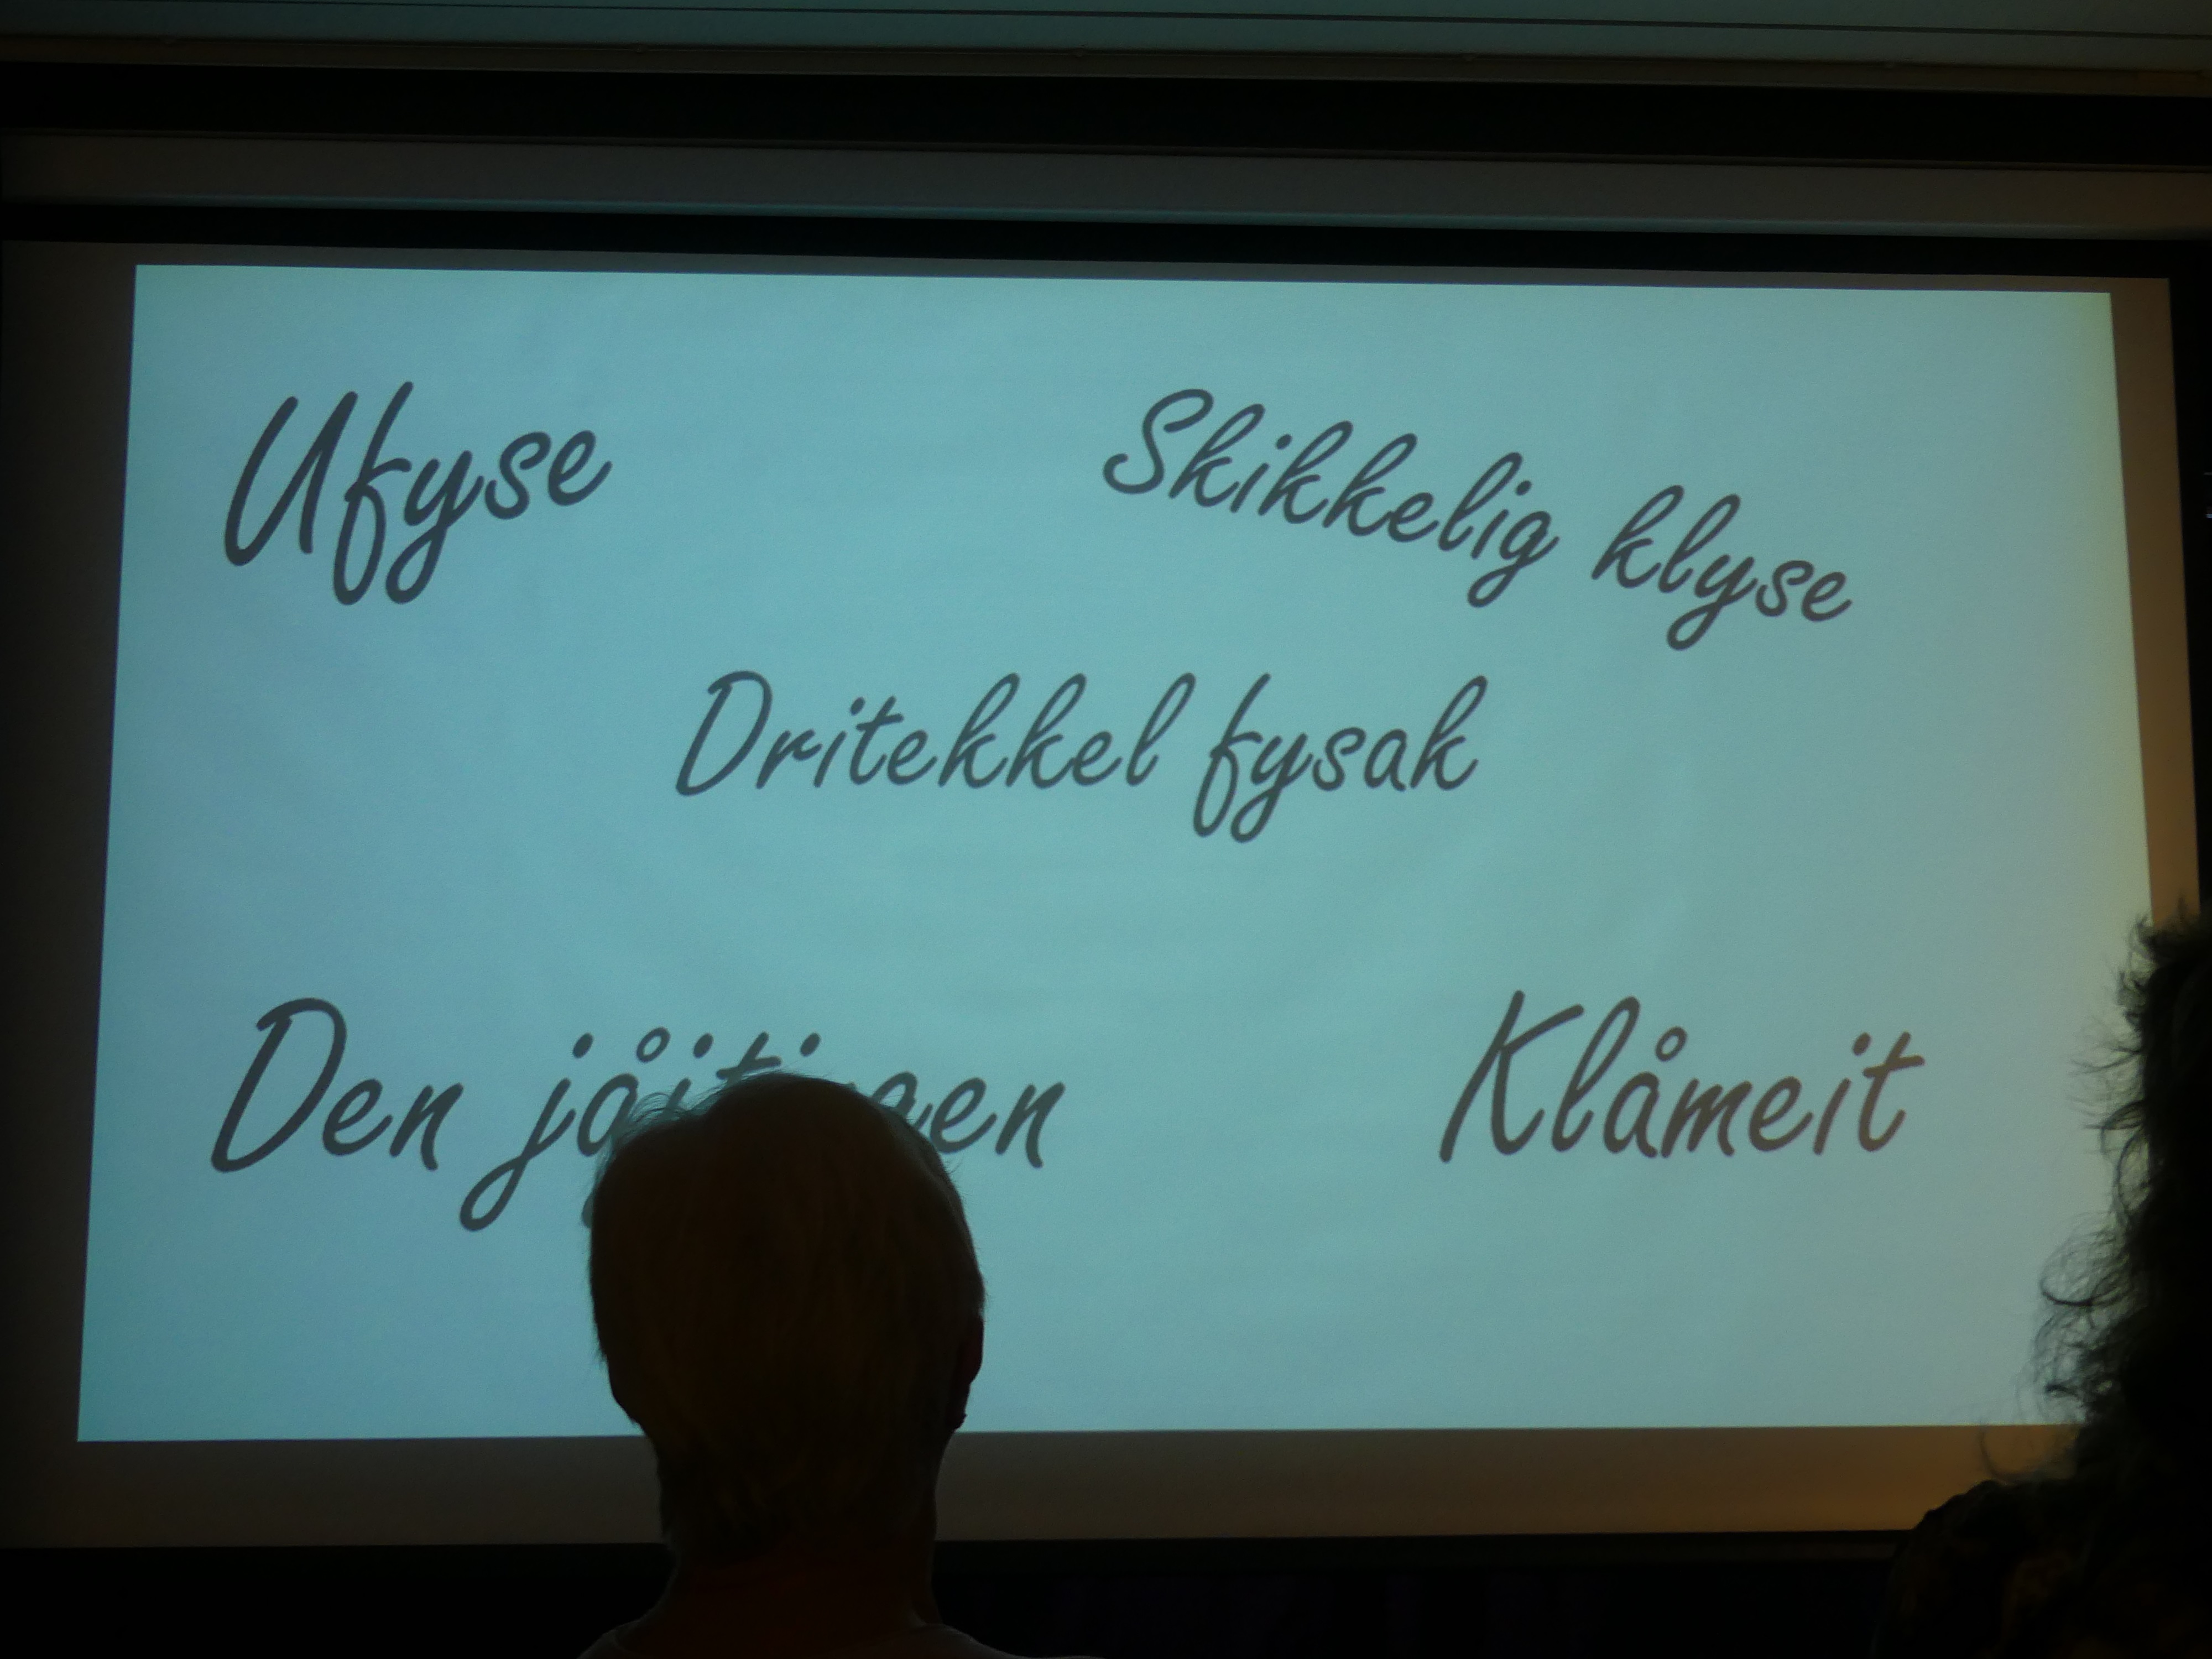 Ufyse
Skikkelig klyse
Dritekkel fysak
Den
Klåmeit